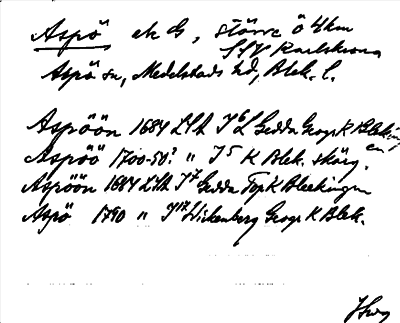 Aspö ek G, större ö 4 km
SSV Karlskrona
Aspö sn, Medelstads hd, Blek. l.
Aspöön 1684 LSA I6 L Gedda Geogr K Blekingen
Aspöö 1700-50? " I5 K Blek. skärg.
Aspöön 1684 LSA I7 Gedda Top K Bleekingen
Aspö 1790 " I17 Wickenberg Geogr K Blek.